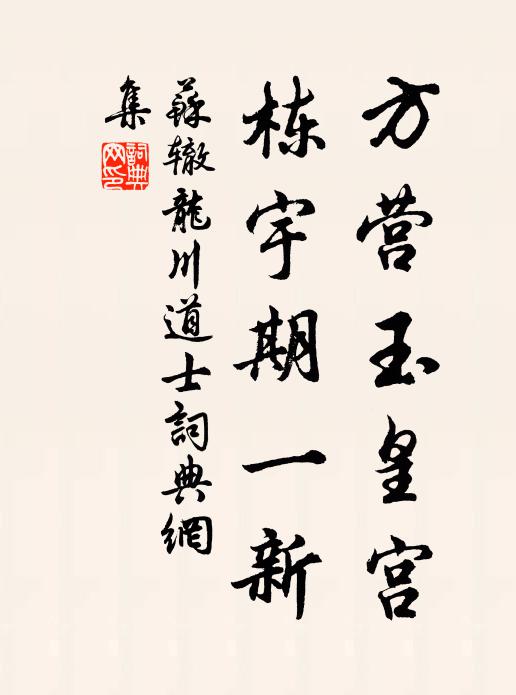 方营玉皇宫
栋宇期一新
蘇辙龍川道士詞典網
集
詞典
网印